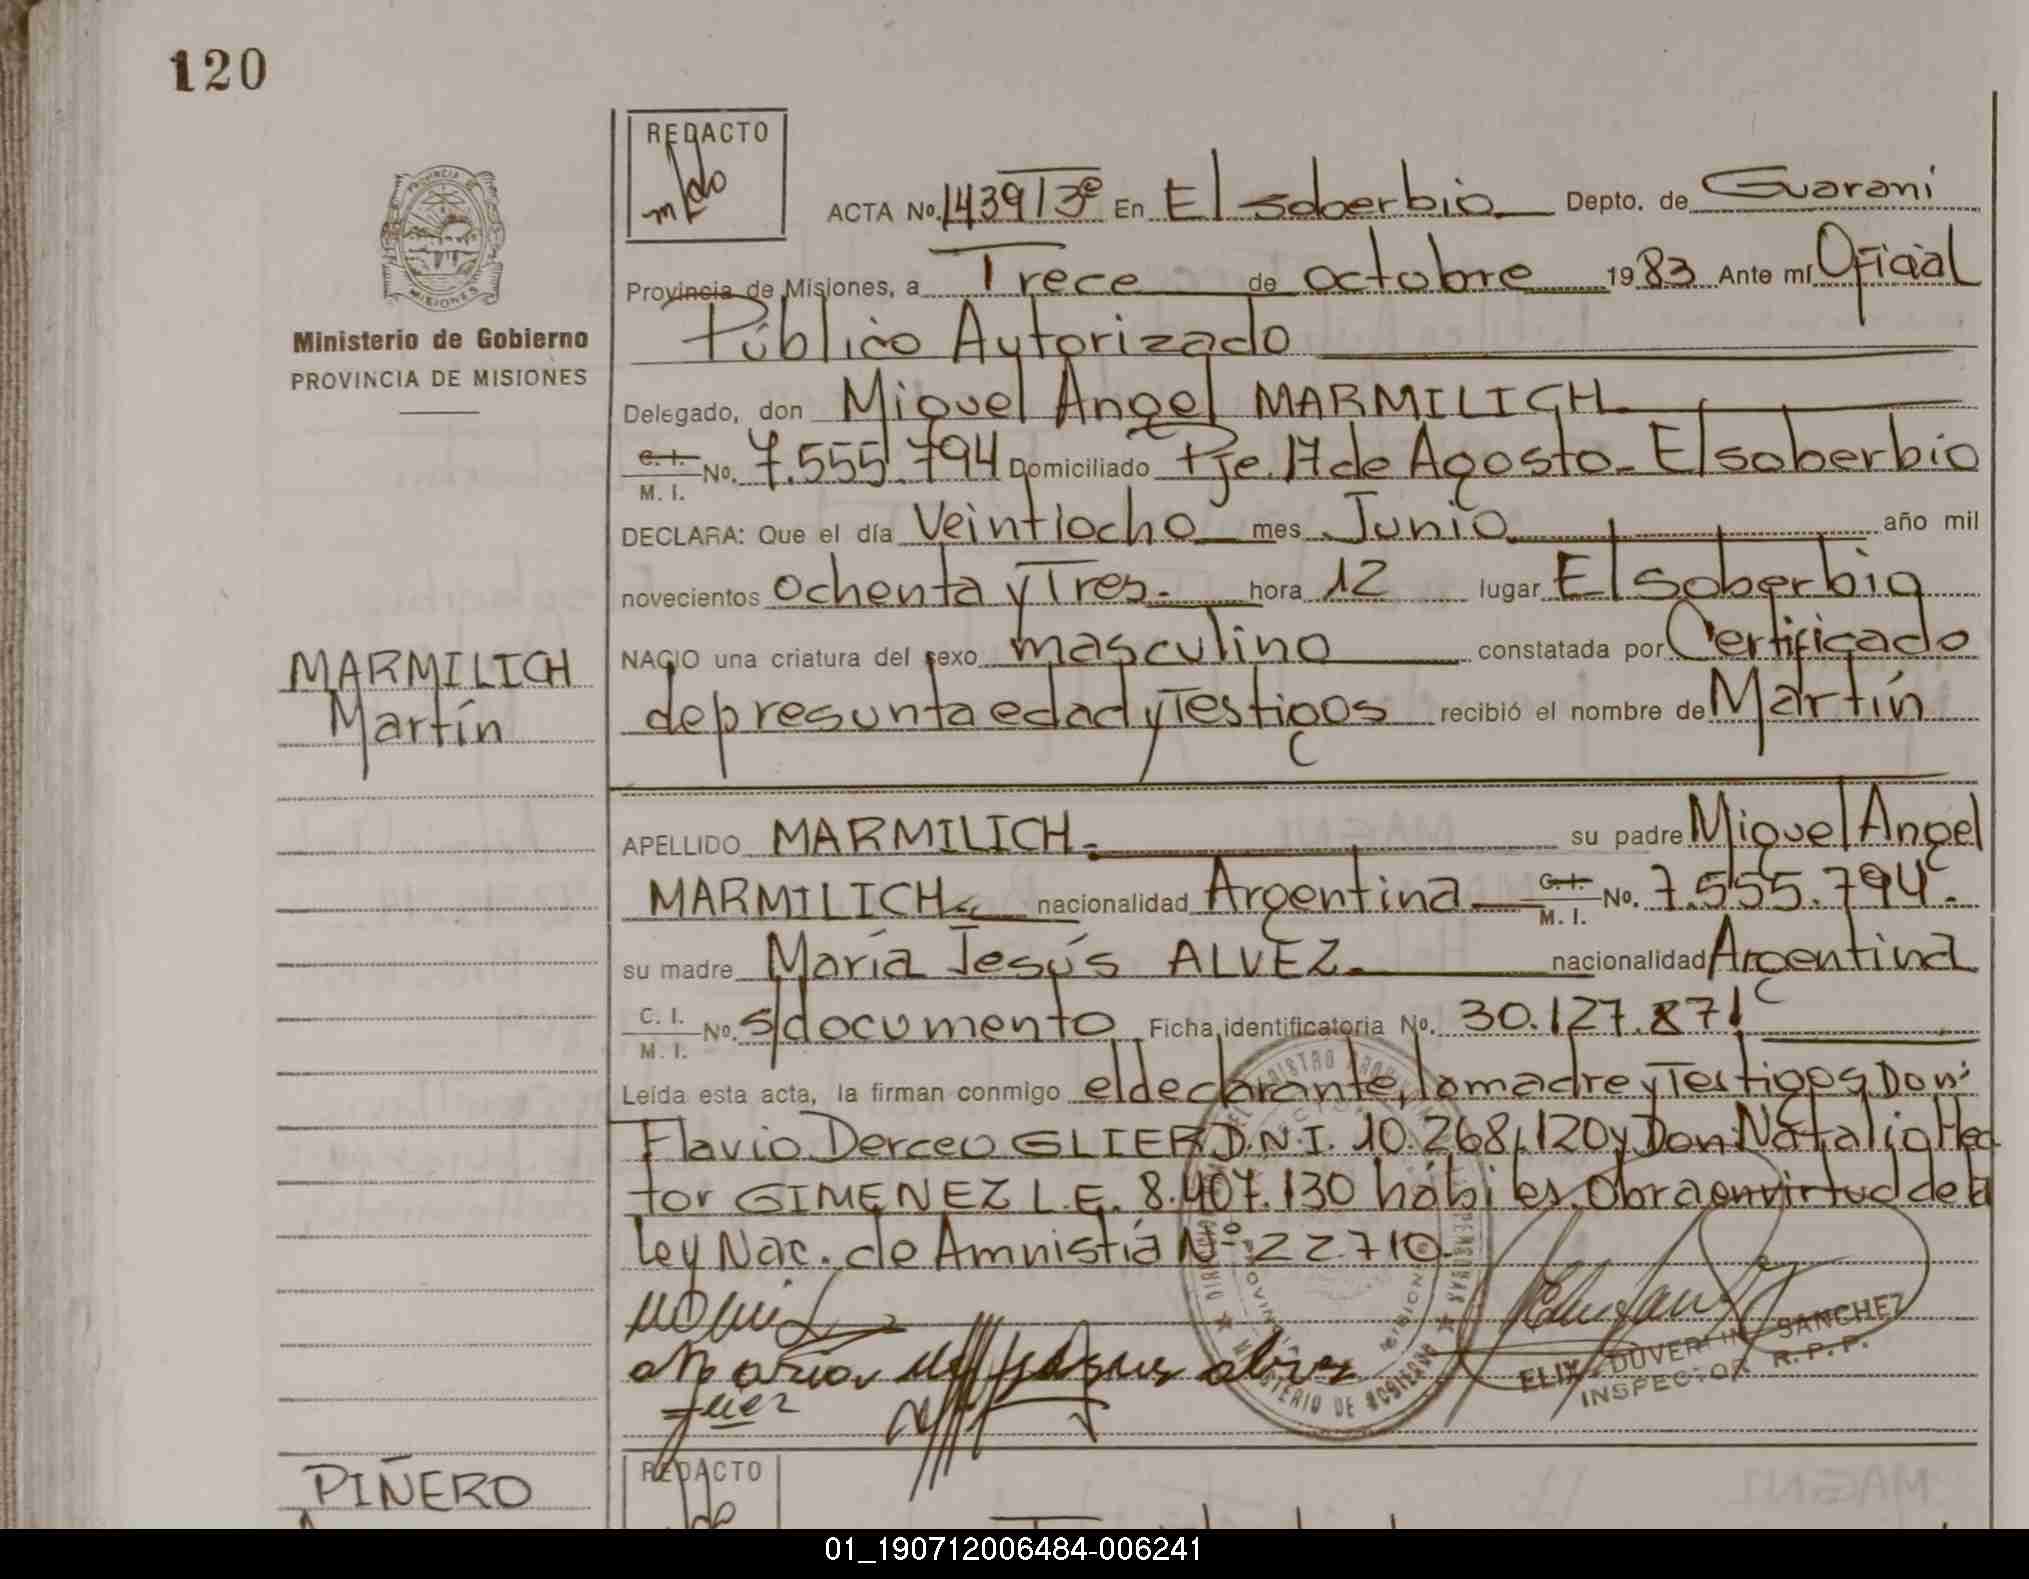 120
REDACTO
PROVINCIA DE
MISIONES
Ministerio de Gobierno
PROVINCIA DE MISIONES
ACTA No. 1439 T 3º En El soberbio Depto. de Guarani
Provincia de Misiones, a Trece de octubre 1983 Ante mí Oficial
Público Autorizado
Delegado, don Miguel Angel MARMILICH
C. I. M. I. No. 7.555.794 Domiciliado Pje. 17 de Agosto - El soberbio
DECLARA: Que el día Veintiocho mes Junio año mil
novecientos ochenta y Tres. hora 12 lugar El soberbio
NACIO una criatura del sexo masculino constatada por Certificado
de presunta edad y Testigos recibió el nombre de Martín
MARMILICH
Martín
APELLIDO MARMILICH. su padre Miguel Angel
MARMILICH nacionalidad Argentina C. I. M. I. No. 7.555.794.
su madre María Jesús ALVEZ. nacionalidad Argentina
C. I. M. I. No. s/documento Ficha identificatoria No. 30.127.871
Leída esta acta, la firman conmigo el declarante, la madre y Testigos Don:
Flavio Derceu GLIER D.N.I. 10.268.120 y Don: Natalio Hec
tor GIMENEZ L.E. 8.407.130 hábiles. Obra en virtud de la
Ley Nac. de Amnistía Nº 22.710.
SANCHEZ
INSPECTOR R.P.P.
PIÑERO
REDACTO
01_190712006484-006241